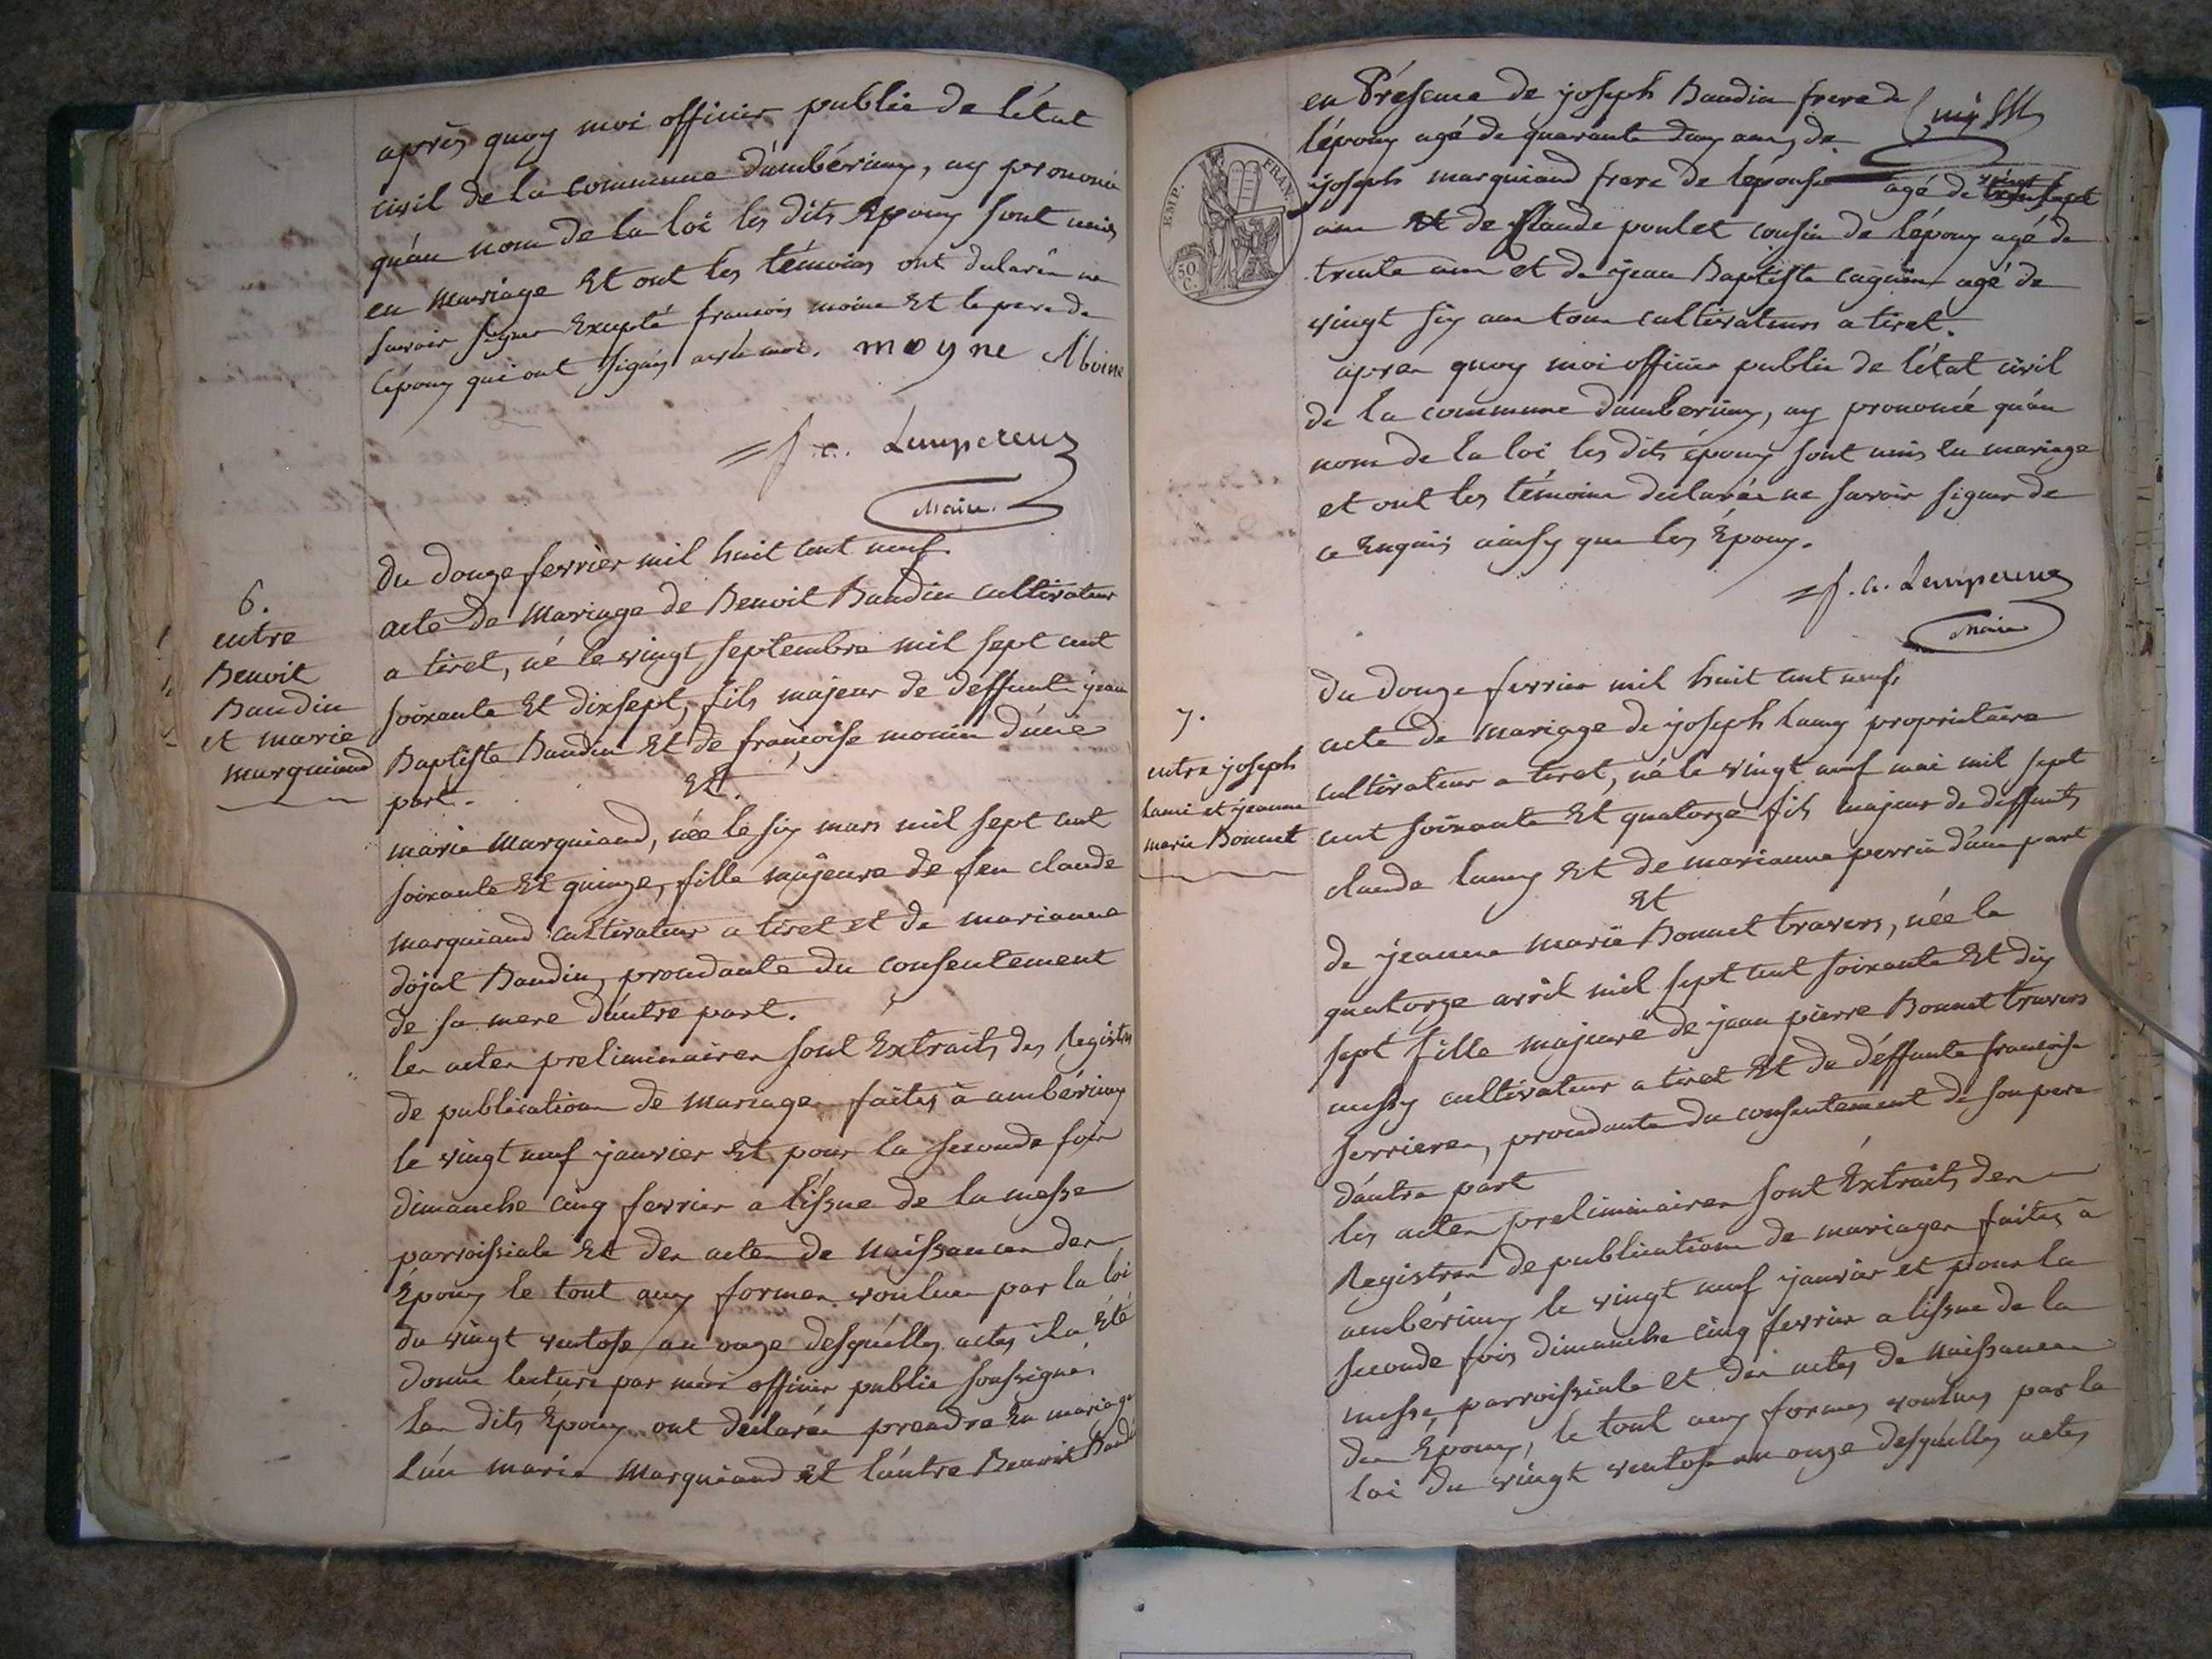 après quoy moi officier public de l'état
civil de la commune d'ambérieux, ay prononcé
qu'au nom de la loi les dits Epoux sont unis
en mariage Et ont les témoins ont declarés ne
savoir signer Excepté francois moine Et le pere de
l'époux qui ont signés avec moi. moyne Moine
f. c. Lempereur
Maire.
6.
entre
Benoit
Baudin
et marie
marguiand
du douze fevrier mil huit cent neuf.
acte de Mariage de Benoit Baudin cultivateur
a tiret, né le vingt septembre mil sept cent
soixante Et dixsept, fils majeur de deffunt jean
Baptiste Baudin Et de françoise monin d'une
part.
Et.
marie Marguiand, née le six mars mil sept cent
soixante Et quinze, fille majeure de feu claude
marguiand cultivateur a tiret et de marianne
dojat Baudin, procedante du consentement
de sa mere d'autre part.
les actes preliminaires sont Extraits des Registres
de publications de Mariages faites à ambérieux
le vingt neuf janvier Et pour la seconde fois
dimanche cinq fevrier a l'issue de la messe
parroissiale Et des actes de Naissances des
Epoux le tout aux formes voulues par la loi
du vingt ventose an onze desquelles actes il a Eté
donné lecture par moi officier public soussigné.
les dits Epoux ont declarés prendre En mariage
l'un marie Marguiand Et l'autre Benoit Baudin
en Présence de joseph Baudin frere de
l'époux agé de quarante deux ans, de
joseph marguiand frere de l'épouse agé de vingt sept
ans Et de claude poulet cousin de l'époux agé de
trente ans et de jean Baptiste cagnin agé de
vingt six ans tous cultivateurs a tiret.
TIMP. FRAN.
50 C.
apres quoy moi officier public de l'état civil
de la commune d'amberieux, ay prononcé qu'au
nom de la loi les dits époux sont unis en mariage
et ont les témoins declarés ne savoir signer de
ce Enquis ainsy que les Epoux.
f. c. Lempereur
Maire
7.
entre joseph
Lami et jeanne
marie Bonnet
du douze fevrier mil huit cent neuf.
acte de mariage de joseph Lamy proprietaire
cultivateur a tiret, né le vingt neuf mai mil sept
cent soixante Et quatorze fils majeur de deffunts
claude Lamy Et de marianne perrin d'une part
Et
de jeanne Marie Bonnet travers, née le
quatorze avril mil sept cent soixante Et dix
sept fille majeure de jean pierre Bonnet travers
aussy cultivateur a tiret Et de déffunte francoise
ferrieres, procedante du consentement de son pere
d'autre part
les actes preliminaires sont Extraits des
Registres de publications de mariages faites a
ambérieux le vingt neuf janvier et pour la
seconde fois dimanche cinq fevrier a l'issue de la
messe parroissiale et des actes de Naissances
des Epoux, le tout aux formes voulues par la
loi du vingt ventose an onze desquelles actes